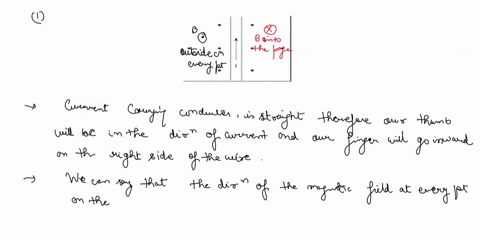 (1)
B
outside on
every pt
B into
the page
→ Current Carrying conductor, is straight therefore our thumb
will be in the dirⁿ of current and our finger will go inward
on the right side of the wire.
→ We can say that the dirⁿ of the magnetic field at every pt
on the